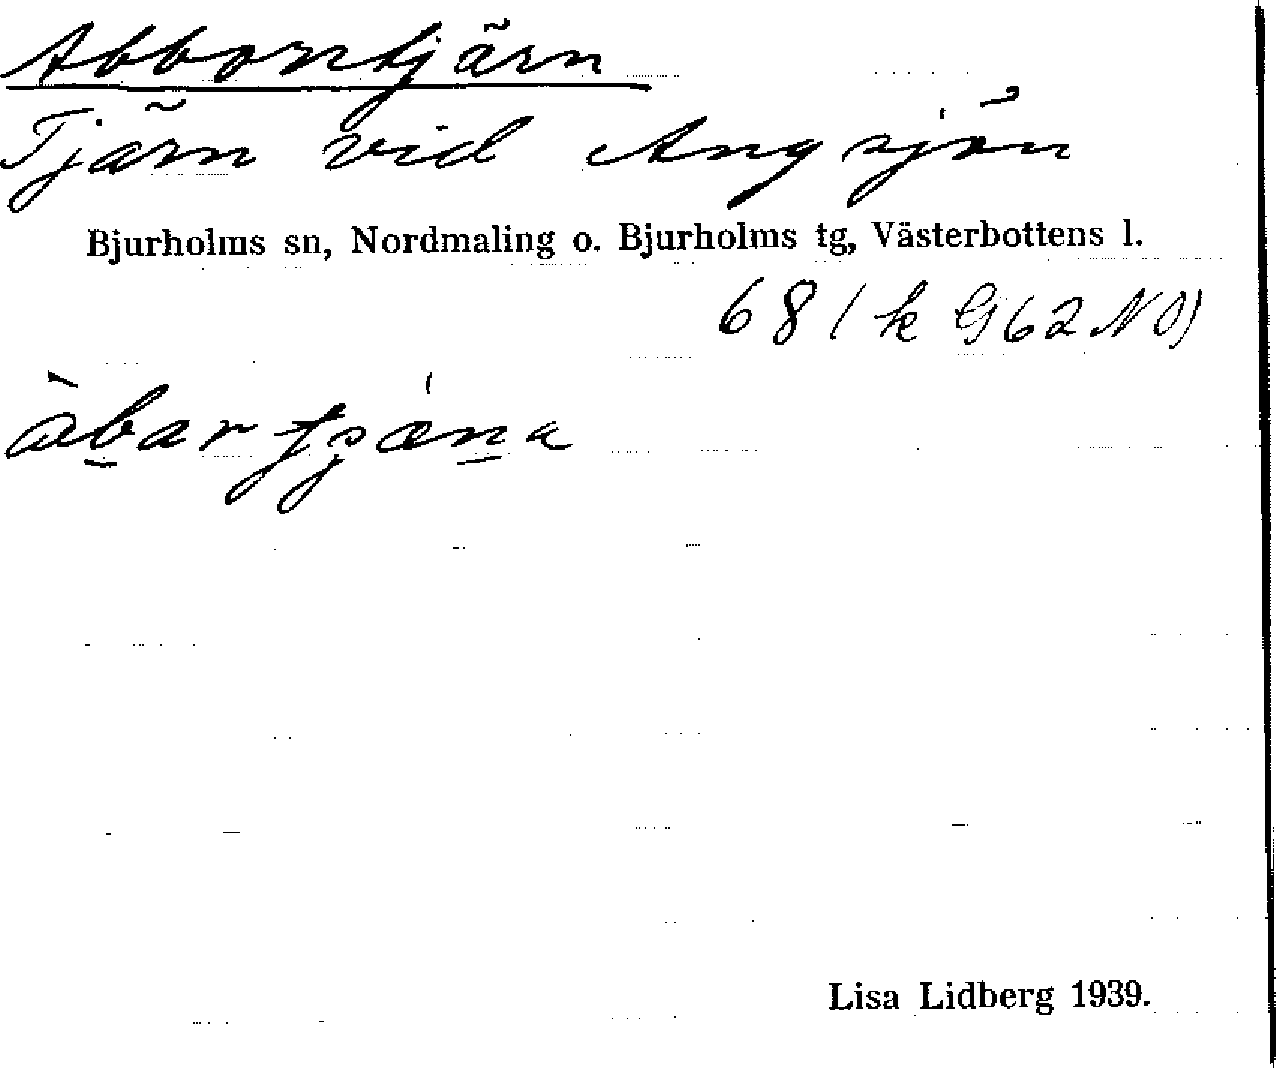 Abborrtjärn
Tjärn vid Angsjön
Bjurholms sn, Nordmaling o. Bjurholms tg, Västerbottens l.
681 k G62 NO)
Lisa Lidberg 1939.